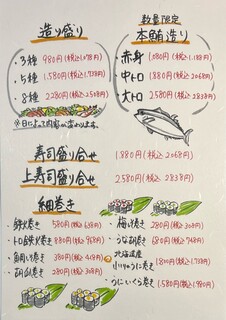 造り盛り
・3種 980円(税込1.078円)
・5種 1.580円(税込1.738円)
・8種 2.280円(税込2.508円)
※日によって内容が変わります。
数量限定
本鮪造り
赤身 1.080円(税込1.188円)
中トロ 1.880円(税込2.068円)
大トロ 2.580円(税込2838円)
寿司盛り合せ 1.880円(税込2068円)
上寿司盛り合せ 2.580円(税込2838円)
細巻き
・鉄火巻き 580円(税込638円)
・トロ鉄火巻き 880円(税込968円)
・胡瓜巻き 280円(税込308円)
・梅しそ巻き 280円(税込308円)
・うなきゅう巻き 680円(税込748円)
北海道産
・うにいくら巻き 1.580円(税込